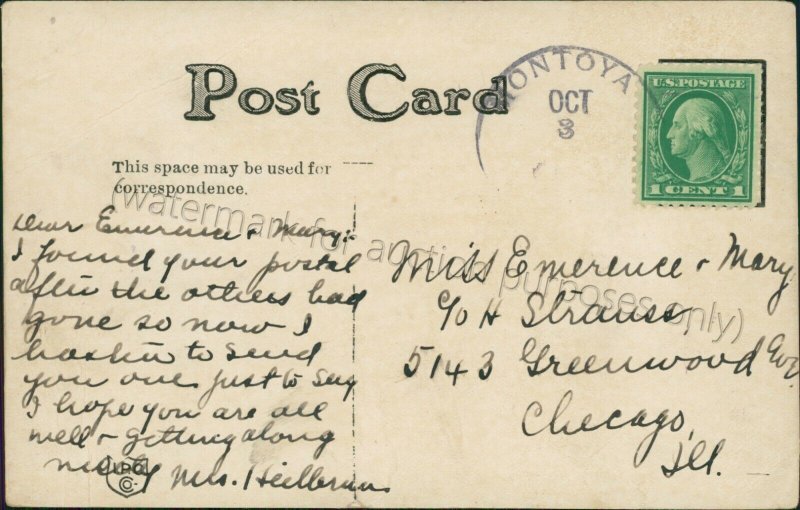 Post Card
MONTOYA
OCT
3
U.S. POSTAGE
1 CENT 1
This space may be used for
correspondence.
(watermark for auction purposes only)
Dear Emerence + Mary:-
I found your postal
after the others had
gone so now I
hasten to send
you one just to say
I hope you are all
well + getting along
nicely Mrs. Heilbrun
Miss Emerence + Mary
c/o H Strauss
5143 Greenwood Ave.
Chicago,
Ill.
CO.